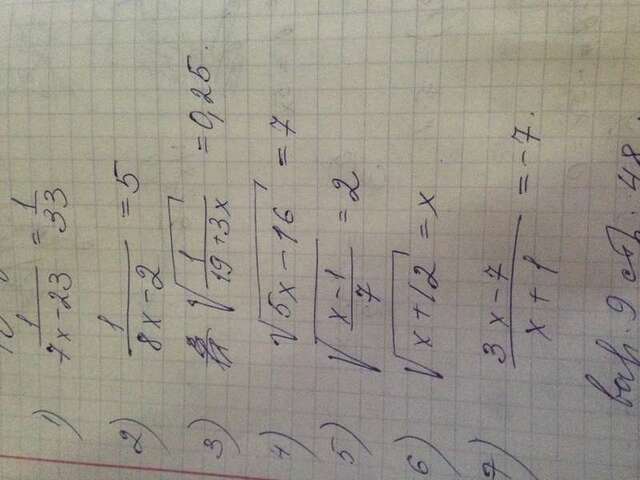 1) 1/(7x-23) = 1/33
2) 1/(8x-2) = 5
3) √(1/(19+3x)) = 0,25.
4) √(5x-16) = 7
5) √((x-1)/7) = 2
6) √(x+12) = x
7) (3x-7)/(x+1) = -7.
вар. 9 стр. 48.